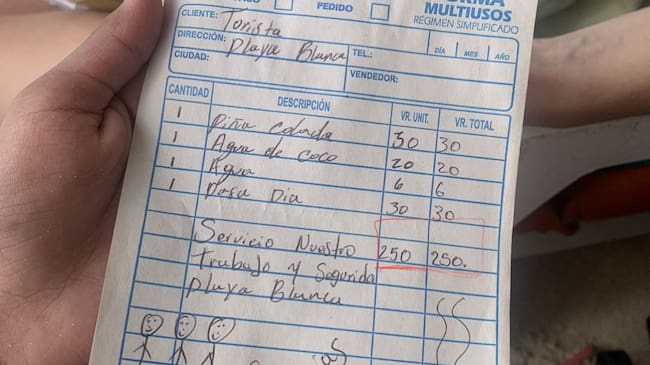 PEDIDO
FORMA
MULTIUSOS
REGIMEN SIMPLIFICADO
CLIENTE: Torista
DIRECCIÓN: Playa Blanca
TEL.:
DÍA MES AÑO
CIUDAD:
VENDEDOR:
CANTIDAD DESCRIPCIÓN VR. UNIT. VR. TOTAL
1 Piña Colada 30 30
1 Agua de coco 20 20
1 Agua 6 6
1 Pasa Dia 30 30
Servicio Nuestro 250 250.
trabajo y Segurida
Playa Blanca